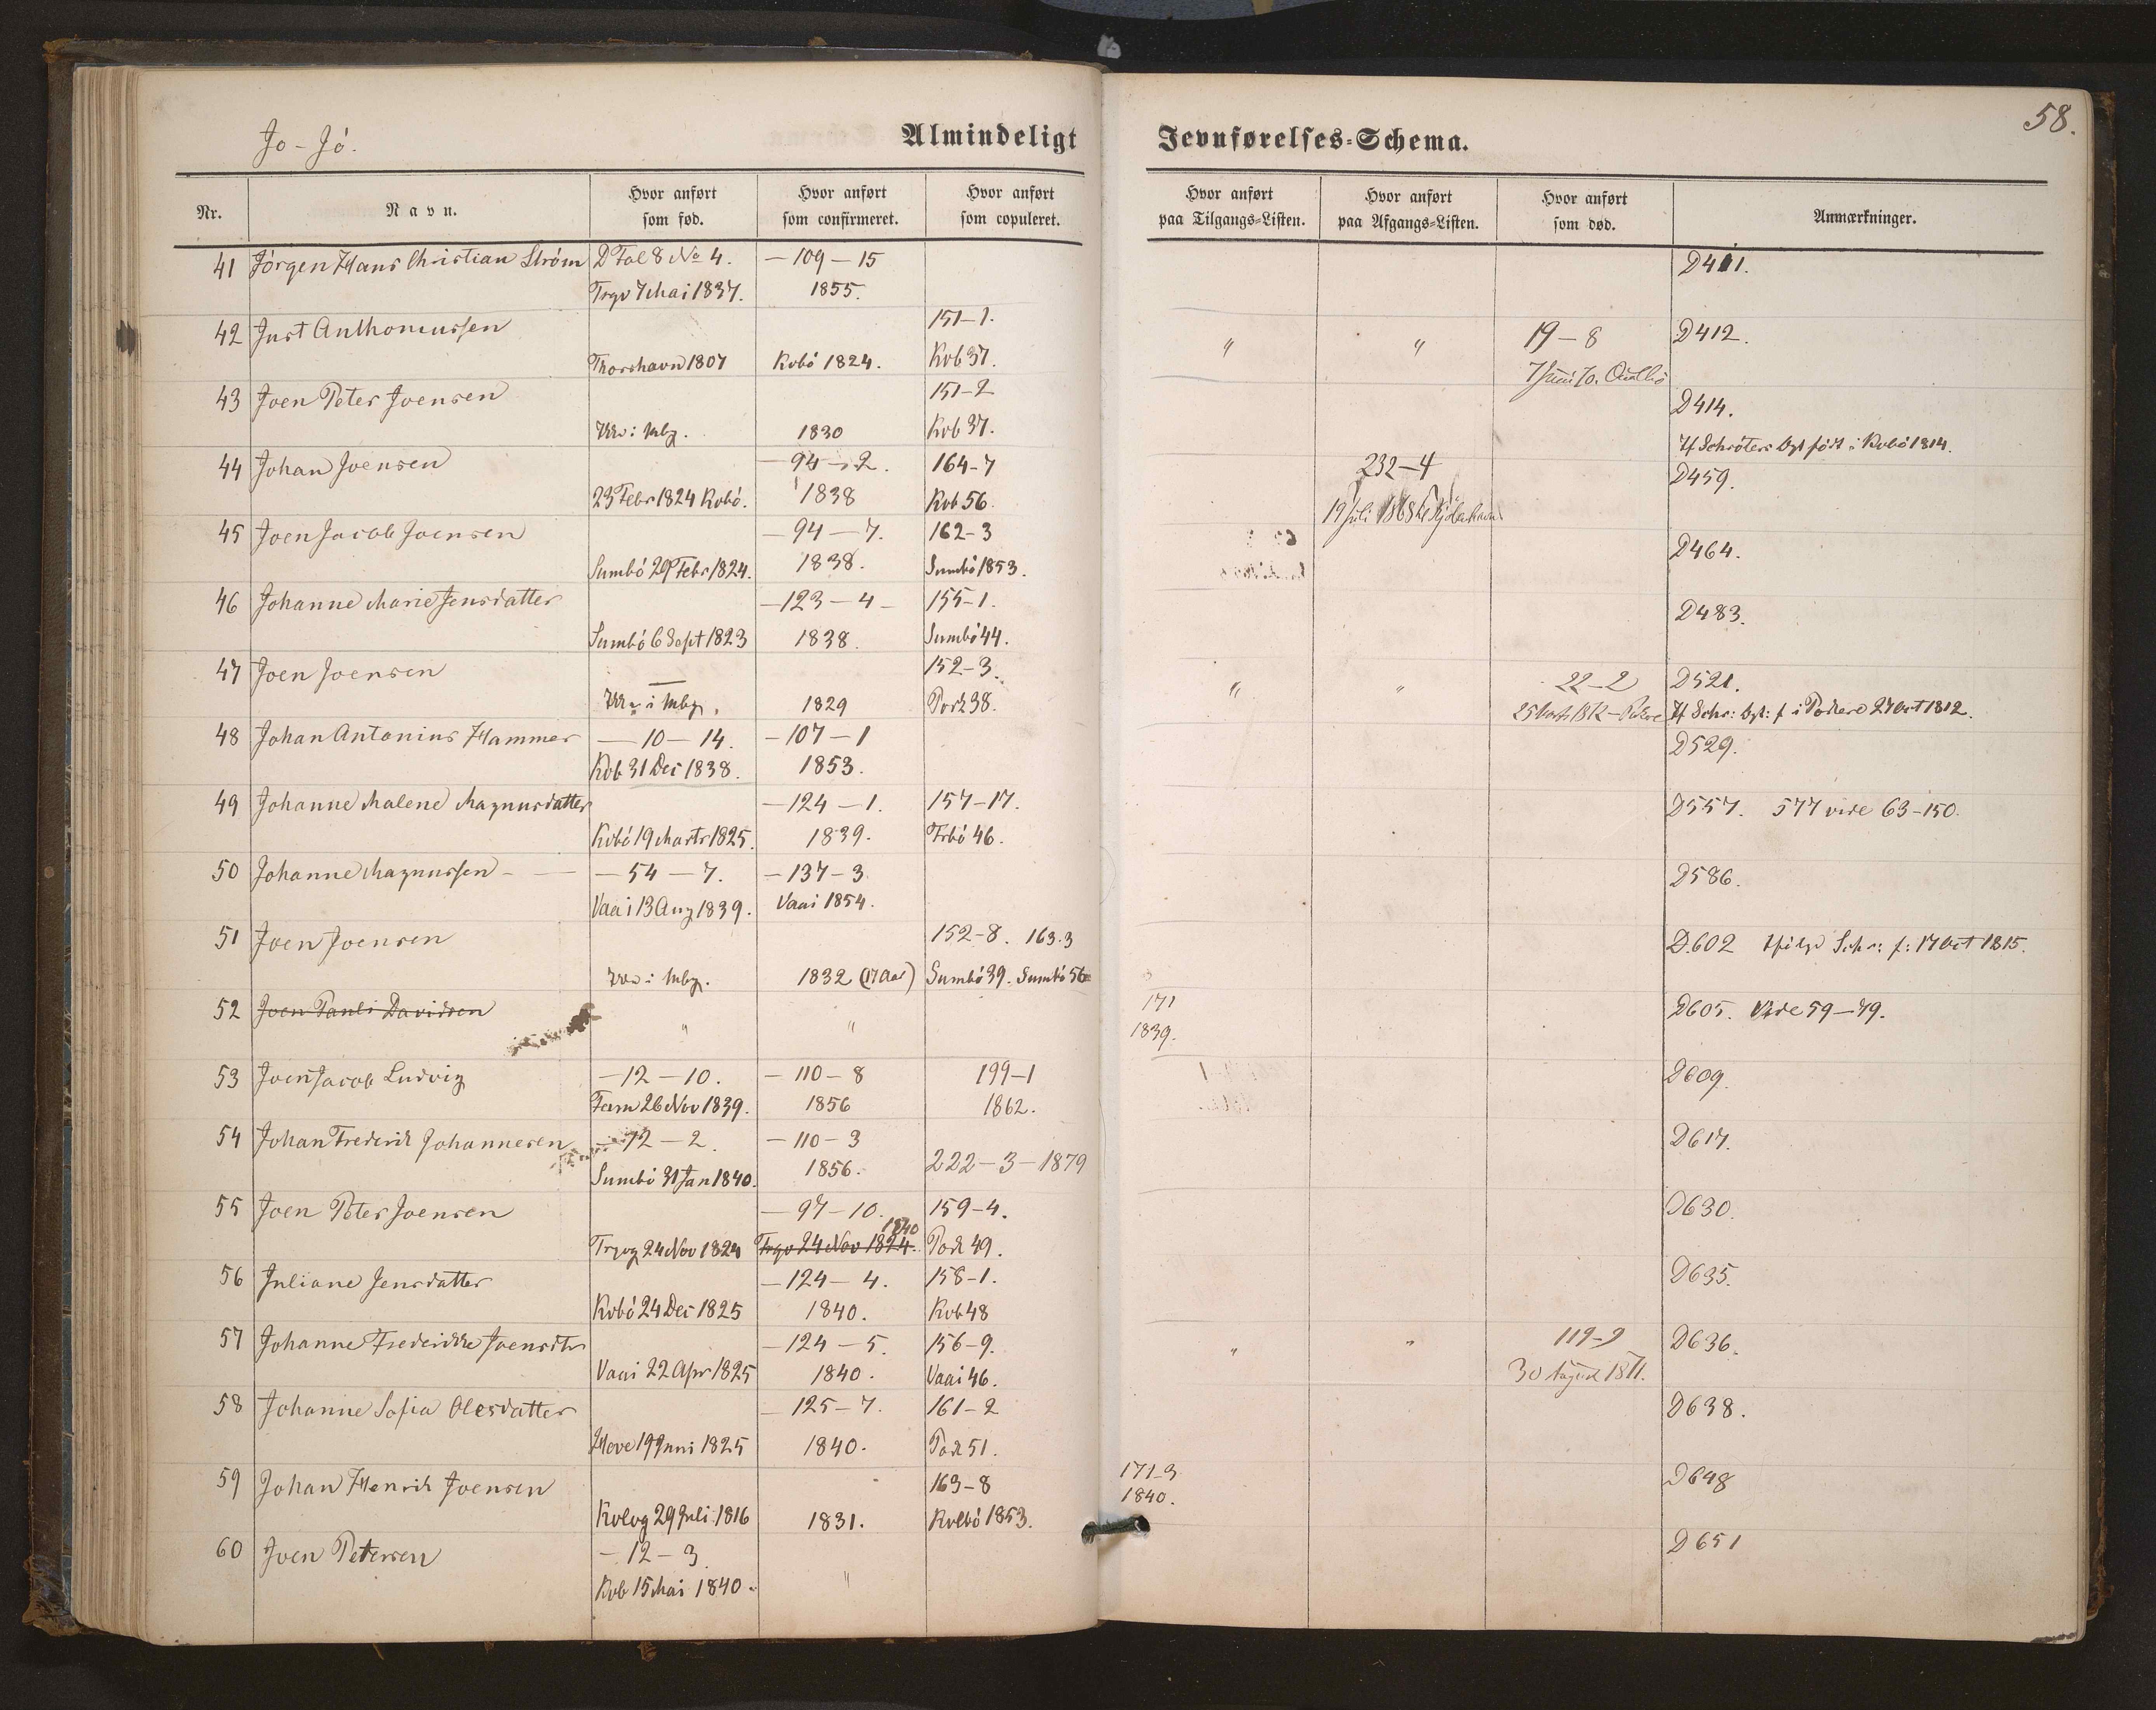 58.
Jo - Jó.
Almindeligt Jevnførelses-Schema.
Nr. Navn. Hvor anført som fød. Hvor anført som confirmeret. Hvor anført som copuleret. Hvor anført paa Tilgangs-Listen. Hvor anført paa Afgangs-Listen. Hvor anført som død. Anmærkninger.
41 Jörgen Hans Christian Ström D Fol 8 No 4. — 109 — 15 D411.
Trgv 7 Mai 1837. 1855.
42 Just Anthoniussen 151-1. " " 19-8 D412.
Thorshavn 1807 Kvbó 1824. Kvb 37. 7 Juni 70.
43 Joen Peter Joensen 151-2 D414.
1830 Kvb 37. Hf Schröters Opt født i Kvbó 1814.
44 Johan Joensen — 94 — 2. 164-7 232-4 D459.
23 Febr 1824 Kvbó. 1838 Kvb 56. 19 Juli 1868
45 Joen Jacob Joensen — 94 — 7. 162-3 D464.
Sumbó 29 Febr 1824. 1838. Sumbó 1853.
46 Johanne Marie Jensdatter — 123 — 4 — 155-1. D483.
Sumbó 6 Sept 1823 1838. Sumbó 44.
47 Joen Joensen 152-3. " " 22-2 D521.
1829 Pork 38. Hf Schr: Opt: f i Porkere 27 Oct 1812.
48 Johan Antonius Hammer — 10 — 14. — 107 — 1 D529.
Kvb 31 Dec 1838. 1853.
49 Johanne Malene Magnusdatter — 124 — 1. 157-17. D557. 577 vide 63-150.
Kvbó 19 Marts 1825. 1839. Frbó 46.
50 Johanne Magnussen — — 54 — 7. — 137 — 3 D586.
Vaai 13 Aug 1839. Vaai 1854.
51 Joen Joensen 152-8. 163.3 D.602 Schr: f: 17 Oct 1815.
1832 (17 Aar) Sumbó 39. Sumbó 56
52 Joen Pauli Davidsen " " 171 D605. Vide 59-79.
1839.
53 Joen Jacob Ludvig — 12 — 10. — 110 — 8 199-1 D609.
Fam 26 Nov 1839. 1856 1862.
54 Johan Frederik Johannesen — 12 — 2. — 110 — 3 D617.
Sumbó 31 Jan 1840. 1856. 222-3-1879
55 Joen Peter Joensen — 97 — 10. 159-4. D630.
Trgvg 24 Nov 1824 Trgv 24 Nov 1824. 1840 Pork 49.
56 Juliane Jensdatter — 124 — 4. 158-1. D635.
Kvbó 24 Dec 1825 1840. Kvb 48
57 Johanne Frederikke Joensdtr — 124 — 5. 156-9. " " 119-9 D636.
Vaai 22 Apr 1825 1840. Vaai 46. 30 August 1871.
58 Johanne Sofia Olesdatter — 125 — 7. 161-2 D638.
Hove 19 Juni 1825 1840. Pork 51.
59 Johan Henrik Joensen 163-8 171-3 D648
Kvlvg 29 Juli 1816 1831. Kvlbó 1853. 1840.
60 Joen Petersen — 12 — 3. D651
Kvb 15 Mai 1840. "